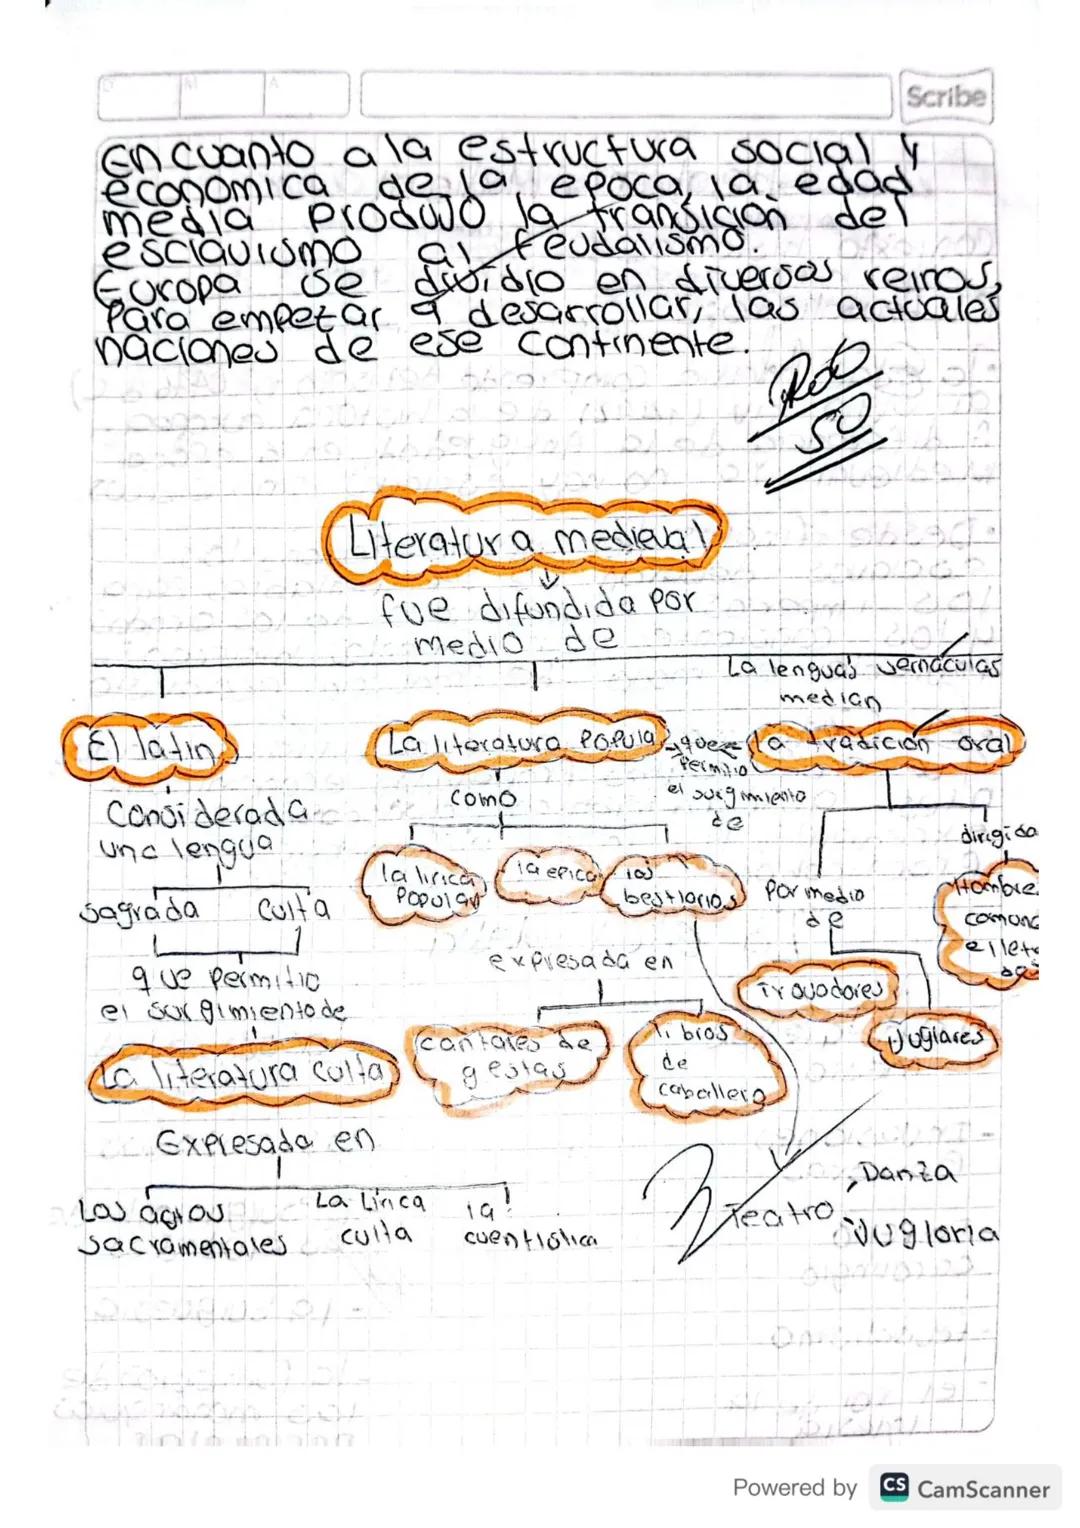 Scribe
En cuanto a la estructura social y
economica de la epoca, la edad
media produjo la transición del
esclavismo al feudalismo.
Europa se dividio en diversos reinos,
Para empezar a desarrollar, las actuales
naciones de ese continente.
50
Literatura medieval
fue difundida por
medio de
La lenguas vernáculas
median
El latin
La literatura Popula
que
Permitio
el surgimiento
de
La tradición oral
Considerada
una lengua
sagrada culta
que permitio
el surgimiento de
La literatura culta
Expresada en
Los agtos
sacramentales
La Lírica
culta
la
cuentistica
como
la lirica
Popular
la epica
los
bestiarios
expresada en
cantares de
gestas
libros
de
caballero
Por medio
de
Trovadores
Juglares
dirigida
Hombre
comun
e
Teatro, Danza
Jugloria
Powered by CS CamScanner